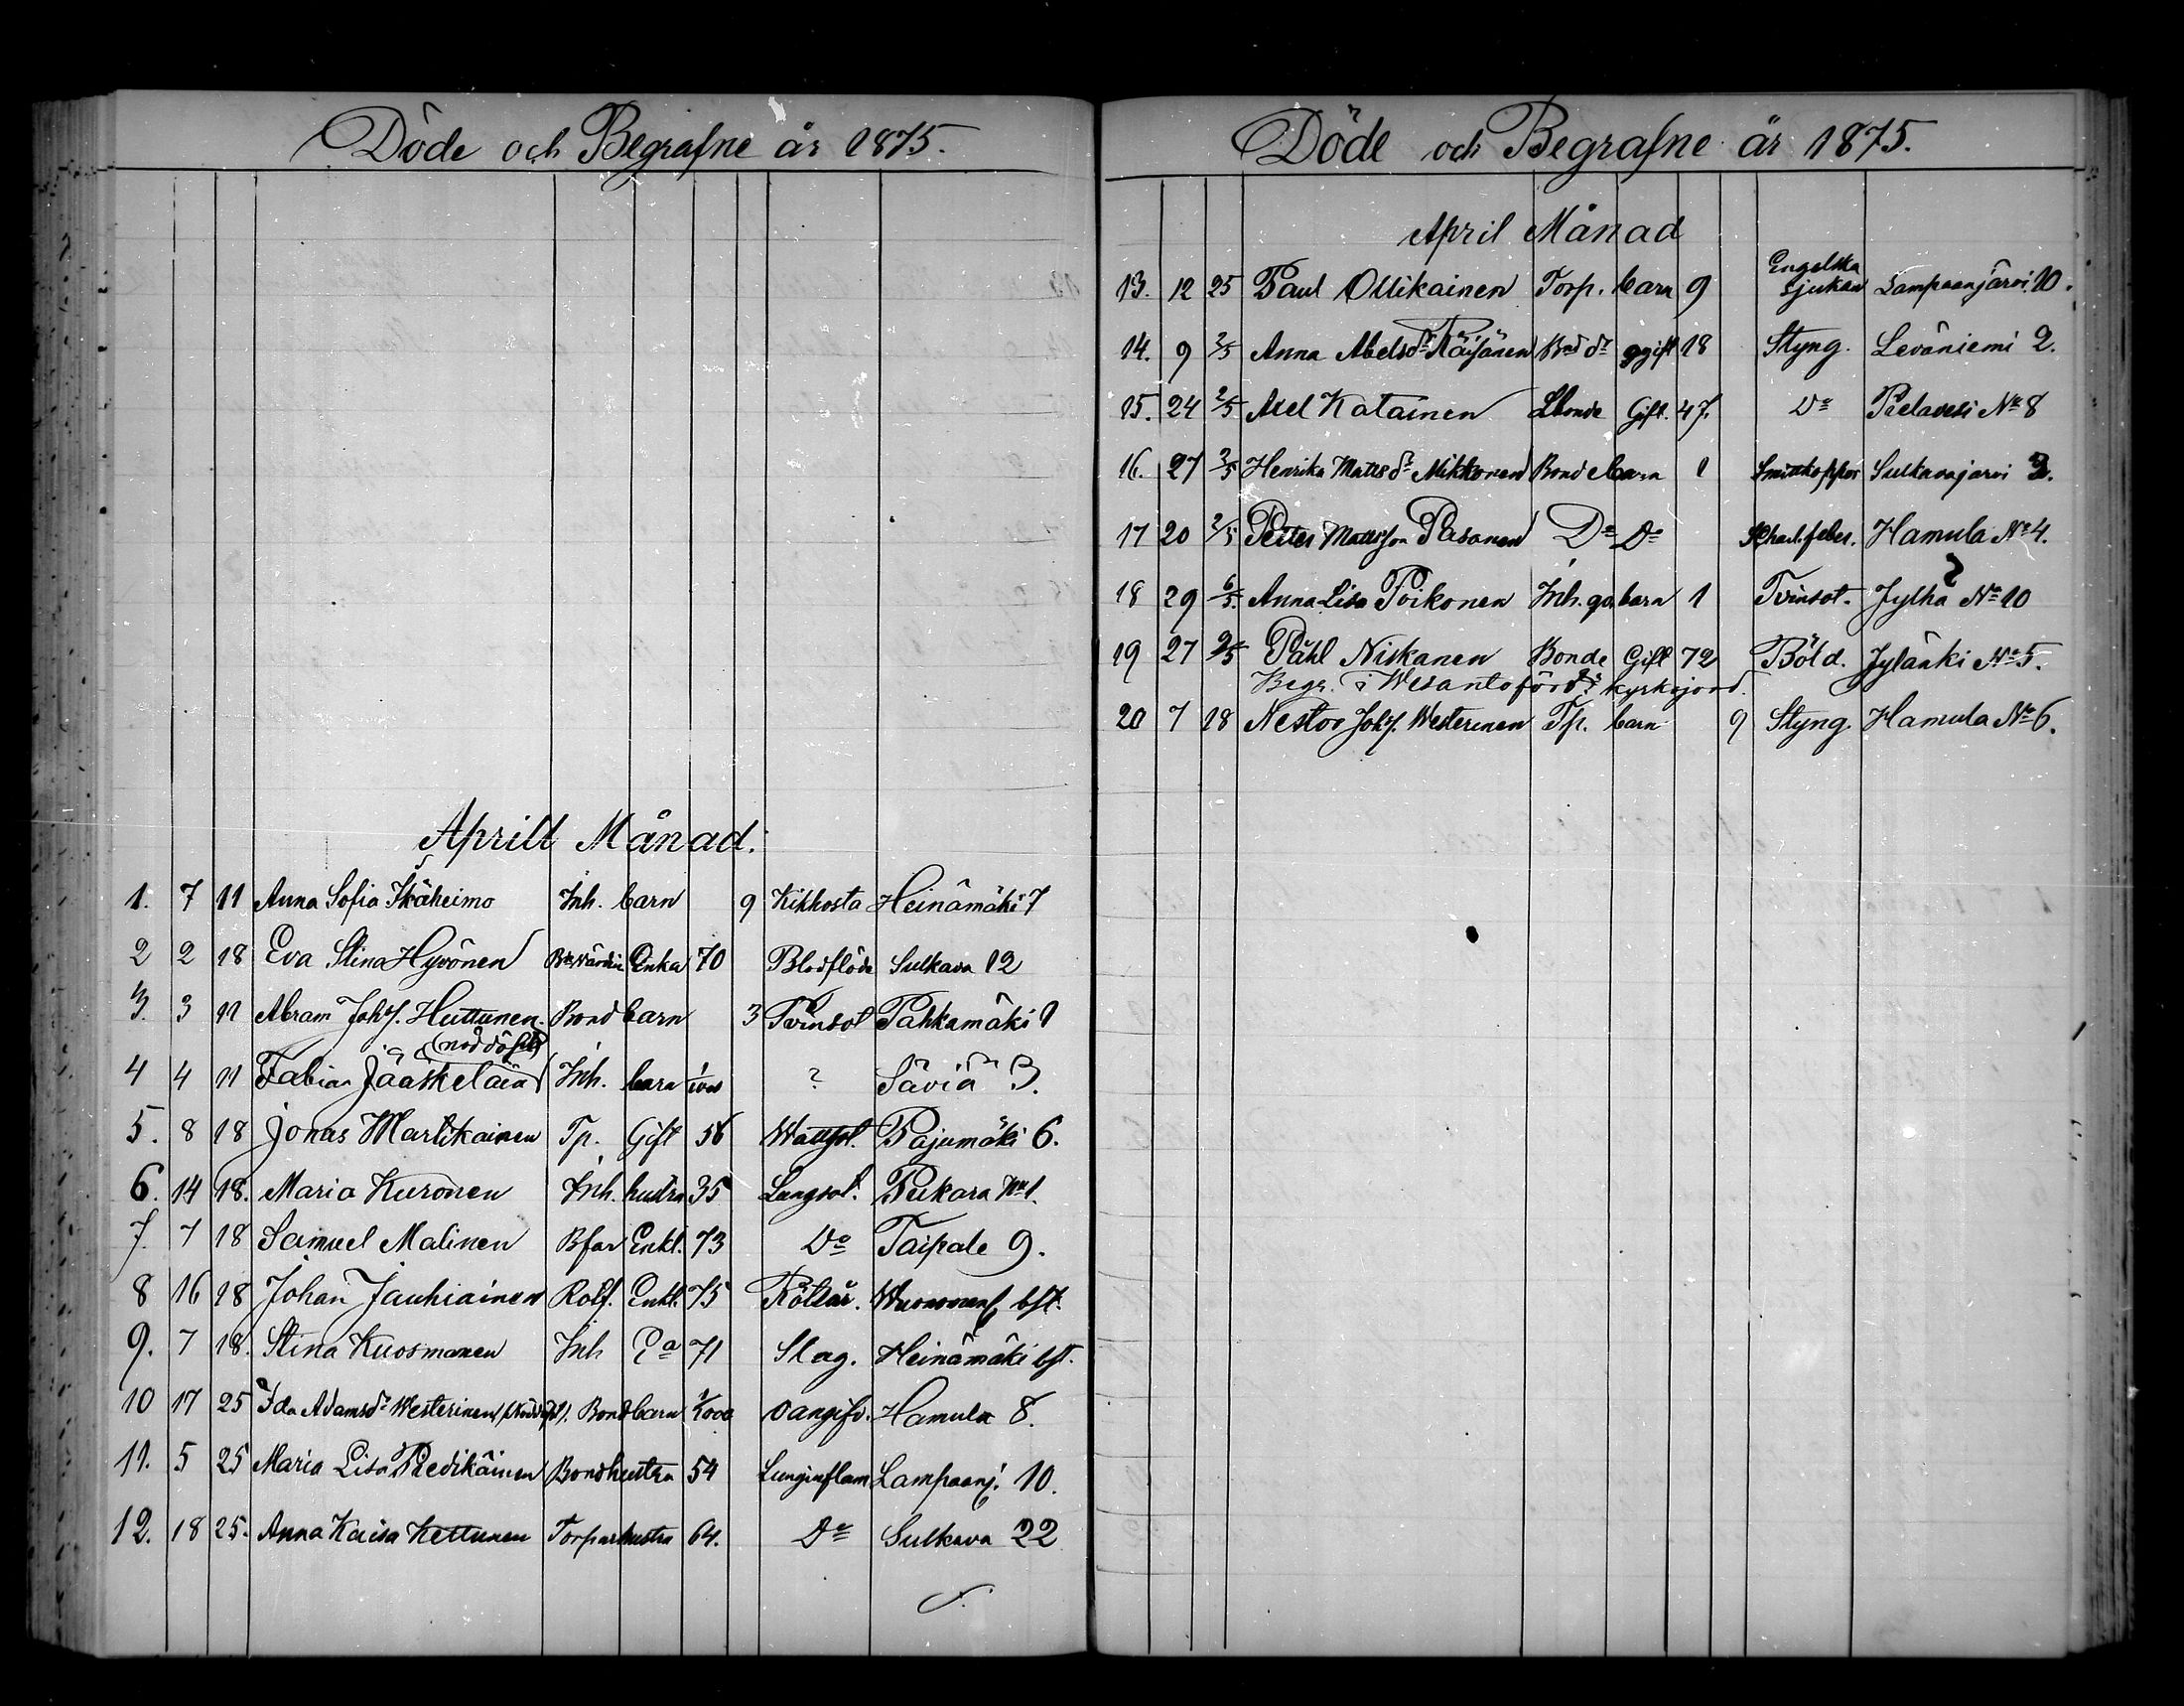 Döde och Begrafne år 1875.
Aprill Månad.
1. 7 11 Anna Sofia Ikäheimo Inh. barn 9 Kikhosta Heinämäki 7
2 2 18 Eva Stina Hyvönen Enka 70 Blodflöde Sulkava 12
3. 3 11 Abram Johs. Huttunen. Bond barn 3 Tvinsot Pahkamäki 1
(nöddöpt)
4 4 11 Fabian Jääskeläin Inh. barn ? Säviä 3.
5. 8 18 Jonas Martikainen Tp. Gift 56 Wattsot. Pajumäki 6.
6. 14 18. Maria Kuronen Inh. hustru 35 Lungsot. Pukara No 1.
7. 7 18 Samuel Malinen Bfar Enkl. 73 Do Taipale 9.
8 16 18 Johan Jauhiainen Rolf. Enkl. 75 bst.
9. 7 18. Stina Kuosmanen Inh Ea 71 Slag. Heinämäki bst.
10 17 25 Ida Adamsdr Westerinen Bond barn oangifv. Hamula 8.
11. 5 25 Maria Lisa Bondhustru 54 Lunginflam Lampaanj. 10.
12. 18 25. Anna Kaisa Kettunen Torparhustru 64. Do Sulkava 22
Döde och Begrafne år 1875.
April Månad
13. 12 25 Paul Ollikainen Torp. barn 9 Engelska sjukan Lampaanjärvi 10.
14. 9 2/5 Anna Abelsdr Räisänen Bnd dr ogift 18 Styng. Leväniemi 2.
15. 24 2/5 Axel Katainen Gift. 47. Do Pielavesi No 8
16. 27 2/5 Henrika Mattsdr Nikkonen Bonde barn 1 Smittkoppor Sulkavajärvi 3.
17 20 2/5 Petter Mattsson Pasanen Do Do Scharl.feber. Hamula No 4.
18 29 6/5. Anna Lisa Poikonen Inh. barn 1 Tvinsot. Jylhä No 10
19 27 9/5 Påhl Niskanen Bonde Gift 72 Böld. Jylänki No 5.
Begr. i Wesanto förs. kyrkojord.
20 7 18 Nestor Johs. Westerinen Tp. barn 9 Styng. Hamula No 6.